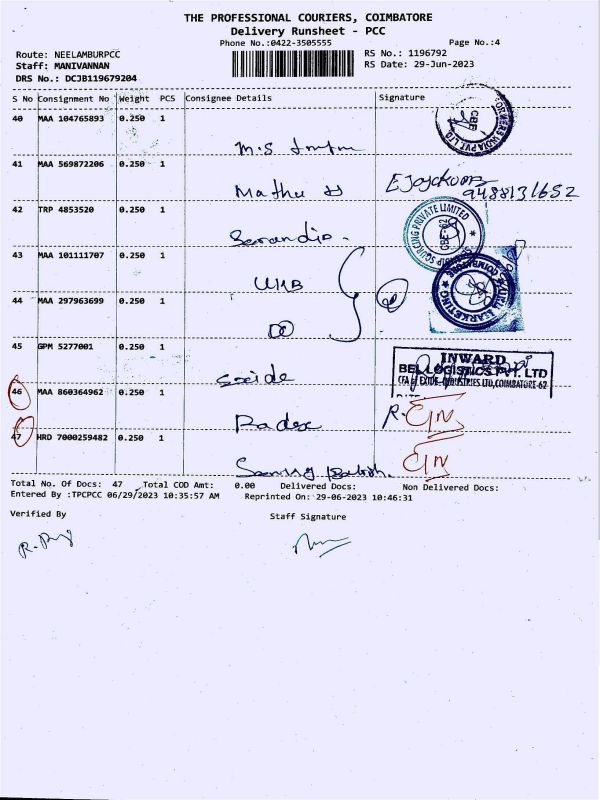 THE PROFESSIONAL COURIERS, COIMBATORE
Delivery Runsheet - PCC
Phone No.:0422-3505555 Page No.:4
Route: NEELAMBURPCC RS No.: 1196792
Staff: MANIVANNAN RS Date: 29-Jun-2023
DRS No.: DCJB119679204
S No Consignment No Weight PCS Consignee Details Signature
40 MAA 104765893 0.250 1
M.S
41 MAA 569872206 0.250 1
Mathu
9488131652
42 TRP 4853520 0.250 1
SOURCING PRIVATE LIMITED
CBE-62
43 MAA 101111707 0.250 1
44 MAA 297963699 0.250 1
45 GPM 5277001 0.250 1
INWARD
BEL LOGISTICS PVT. LTD
CFA of EXIDE INDUSTRIES LTD, COIMBATORE-62
exide
46 MAA 860364962 0.250 1
47 HRD 7000259482 0.250 1
Total No. Of Docs: 47 Total COD Amt: 0.00 Delivered Docs: Non Delivered Docs:
Entered By :TPCPCC 06/29/2023 10:35:57 AM Reprinted On: 29-06-2023 10:46:31
Verified By Staff Signature